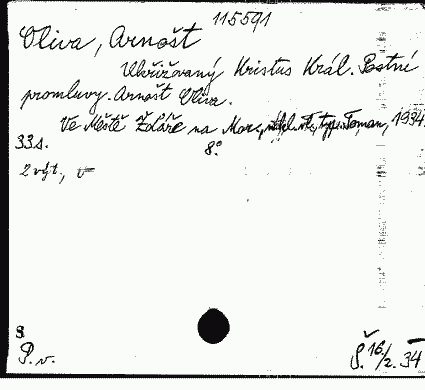 115591
Oliva, Arnošt
Ukřižovaný Kristus Král. Postní
promluvy. Arnošt Oliva.
Ve Městě Žďáře na Mor., typ. Toman, 1934.
33 s. 8°.
2 výt.,
S
P. v. Š. 16/2. 34